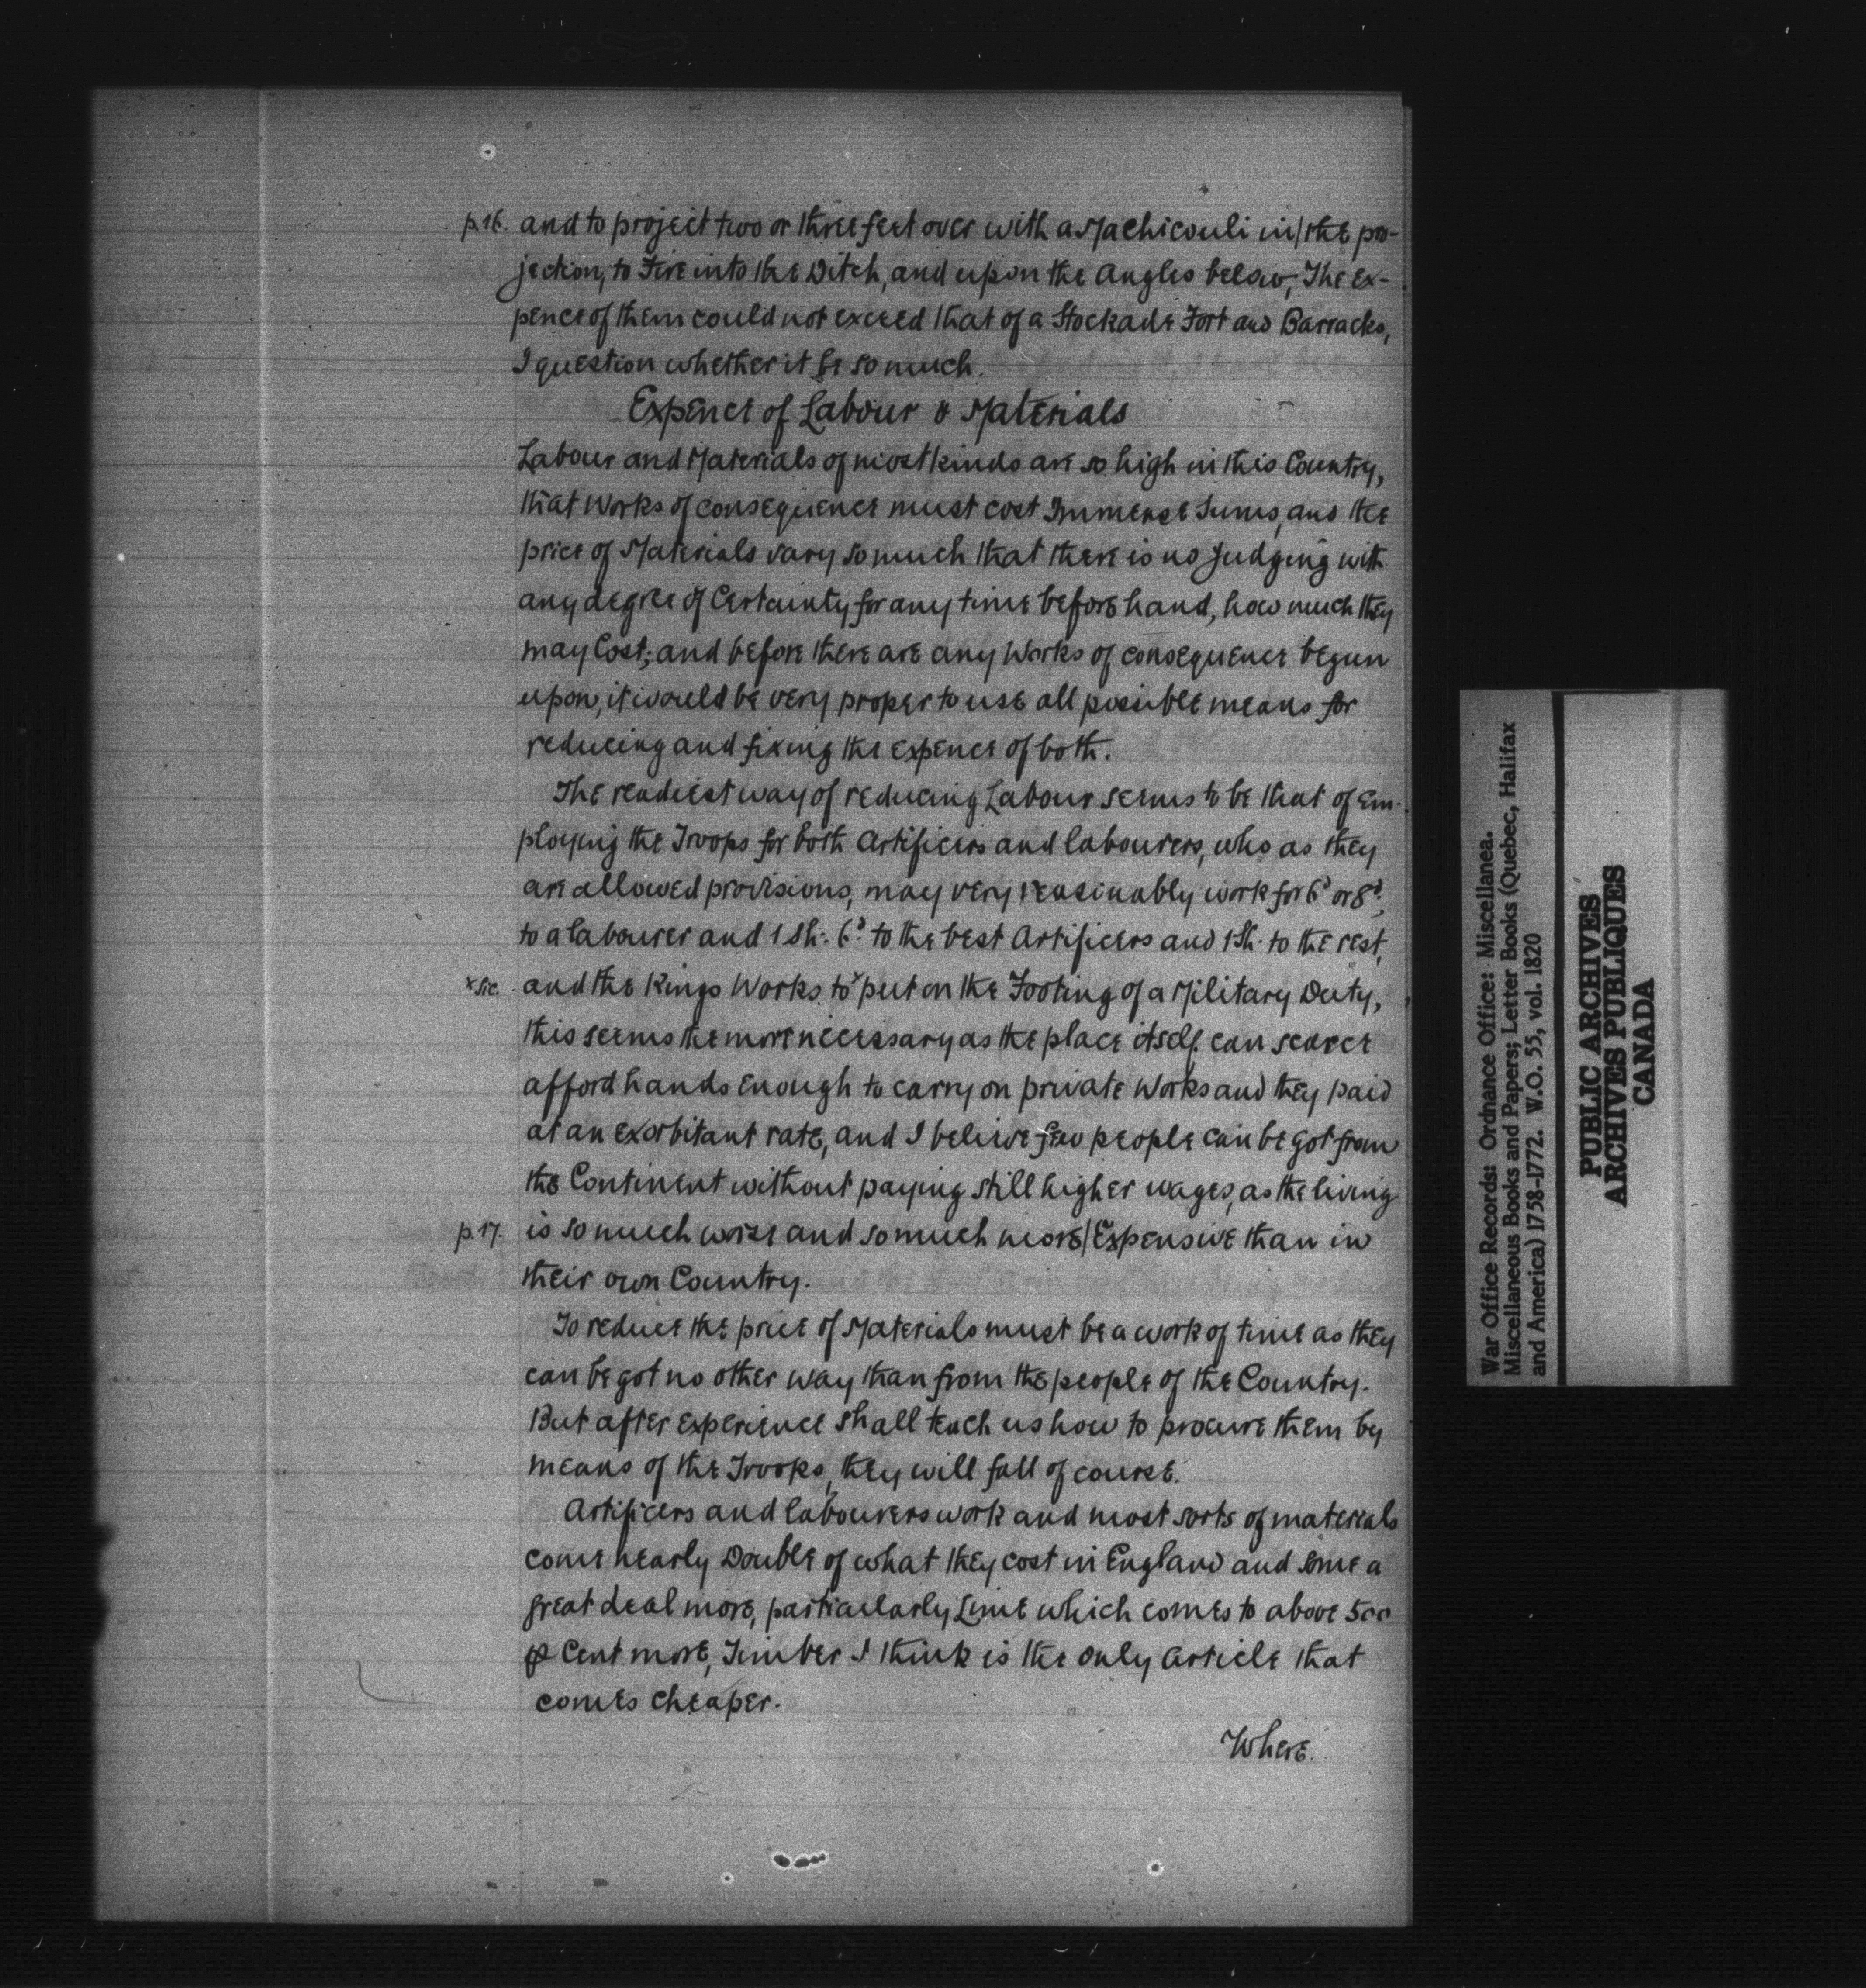 p.16. and to project two or three feet over with a Machicouli in/the pro-
jection, to Fire into the Ditch, and upon the Angles below, The Ex-
pence of them could not exceed that of a Stockade Fort and Barracks,
I question whether it be so much.
Expence of Labour & Materials
Labour and Materials of most kinds are so high in this Country,
that Works of consequence must cost Immense Sums, and the
price of Materials vary so much that there is no Judging with
any degree of Certainty for any time before hand, how much they
may Cost; and before there are any Works of consequence begun
upon, it would be very proper to use all possible means for
reducing and fixing the expence of both.
The readiest way of reducing Labour seems to be that of Em-
ploying the Troops for both Artificers and labourers, who as they
are allowed provisions, may very reasonably work for 6d or 8d,
to a labourer and 1 Sh. 6d to the best Artificers and 1 Sh. to the rest,
x sic. and the Kings Works to x put on the Footing of a Military Duty,
this seems the more necessary as the place itself can scarce
afford hands enough to carry on private Works and they paid
at an exorbitant rate, and I believe few people can be got from
the Continent without paying still higher wages, as the living
p.17. is so much worse and so much more/Expensive than in
their own Country.
To reduce the price of Materials must be a work of time as they
can be got no other way than from the people of the Country.
But after experience shall teach us how to procure them by
means of the Troops, they will fall of course.
Artificers and labourers work and most sorts of materials
come nearly Double of what they cost in England and some a
great deal more, particularly Lime which comes to above 500
⅌ Cent more, Timber I think is the only Article that
comes cheaper.
Where
War Office Records: Ordnance Office: Miscellanea.
Miscellaneous Books and Papers; Letter Books (Quebec, Halifax
and America) 1758-1772. W.O. 55, vol. 1820
PUBLIC ARCHIVES
ARCHIVES PUBLIQUES
CANADA